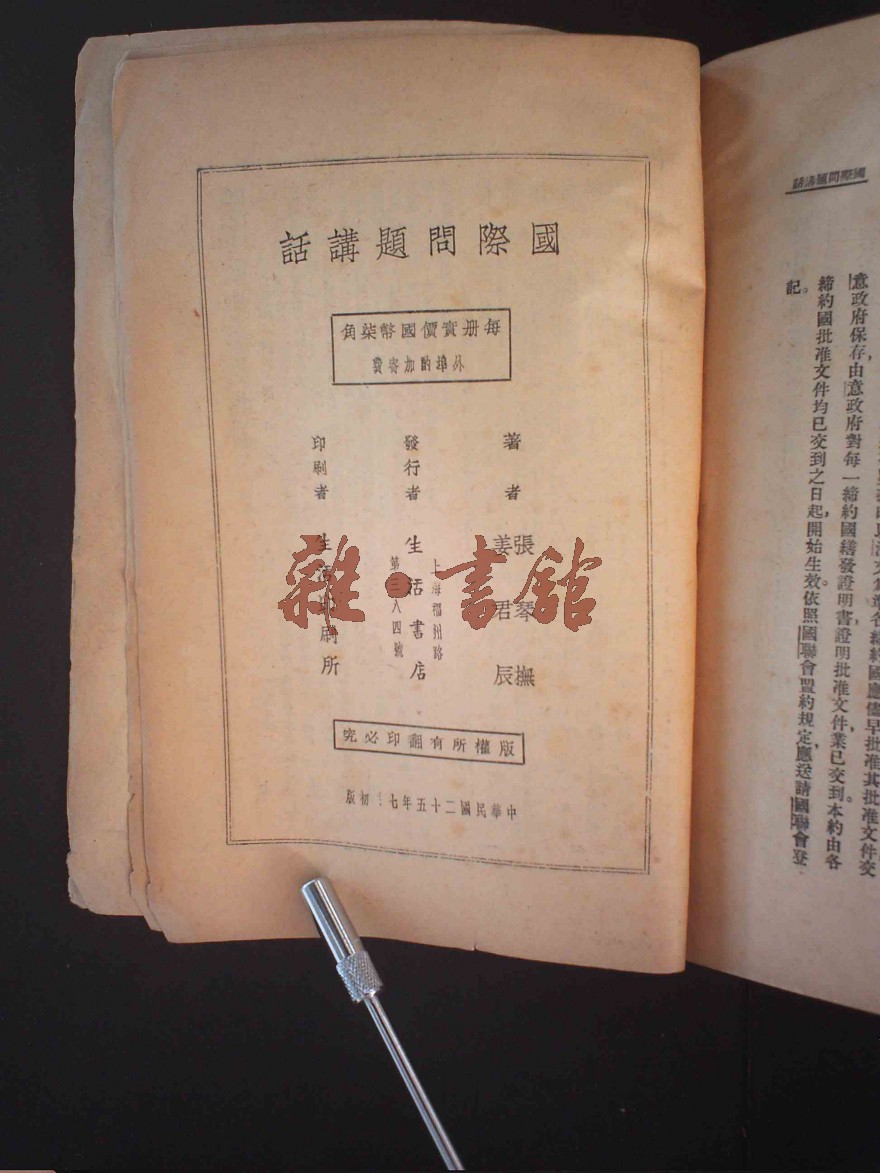 國際問題講話
每册實價國幣柒角
外埠酌加寄費
著者 張琴撫 姜君辰
發行者 生活書店
上海福州路
第三八四號
印刷者 生活印刷所
版權所有翻印必究
中華民國二十五年七月初版
雜·書館
國際問題講話
意政府保存,由意政府對每一締約國繕發證明書,證明批准文件業已交到。本約由各
締約國批准文件均已交到之日起,開始生效。依照國聯會盟約規定,應送請國聯會登
記。